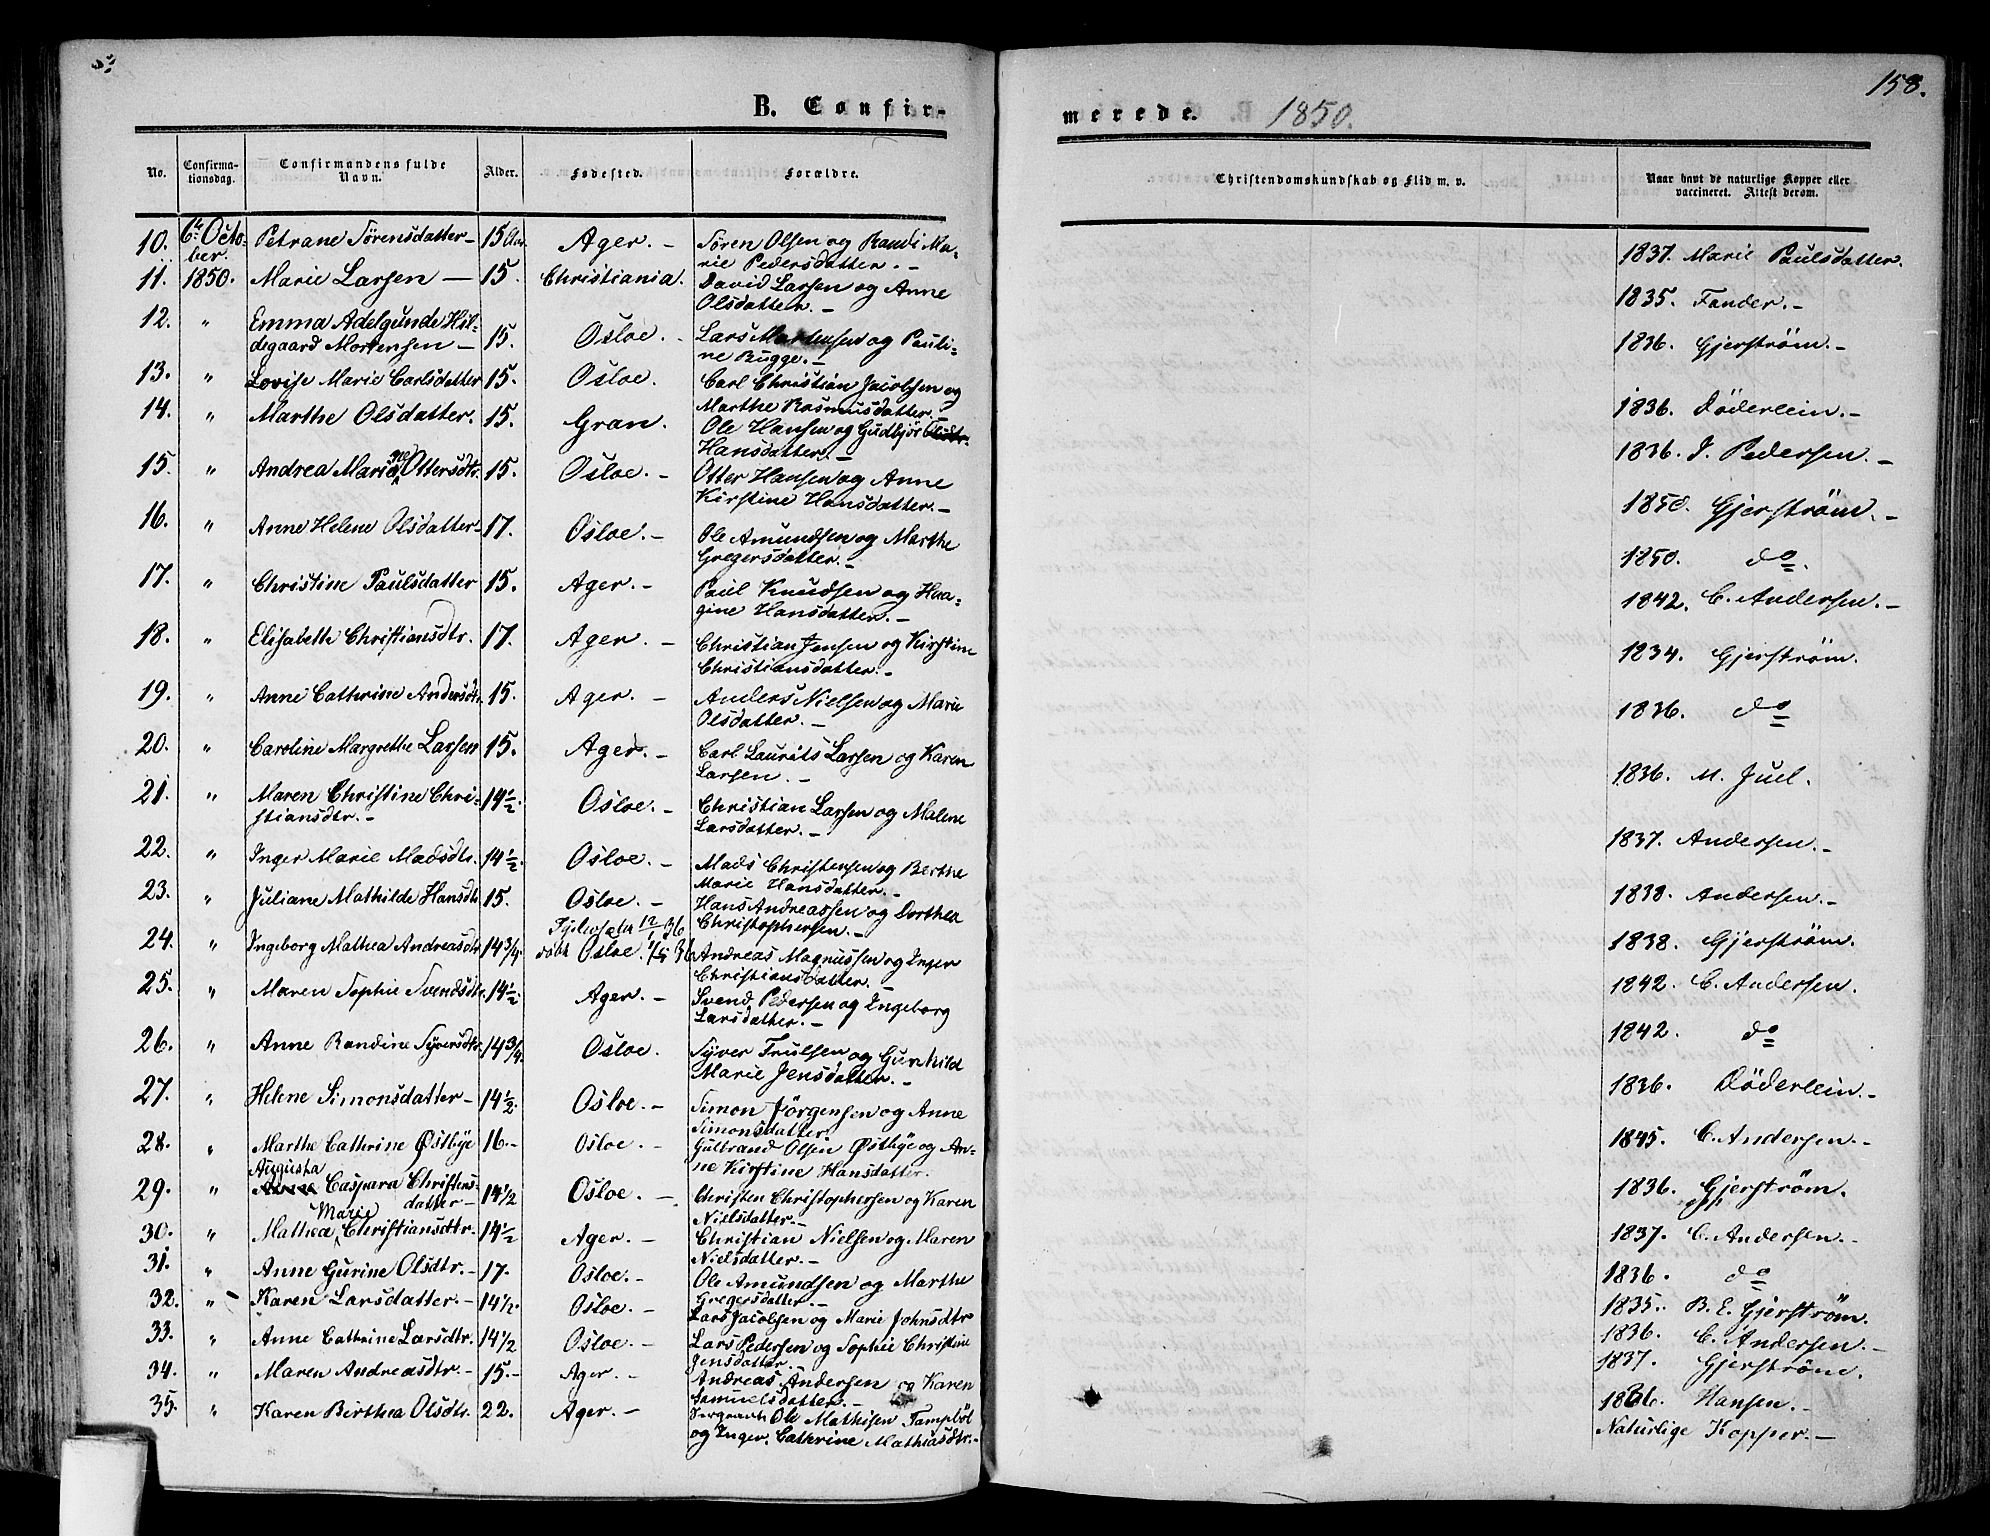 158.
B. Confir-
merede. 1850.
No.
Confirma-
tionsdag.
Confirmandens fulde
Navn.
Alder.
Fødested.
Forældre.
Christendomskundskab og Flid m. v.
Naar havt de naturlige Kopper eller
vaccineret. Attest derom.
10. 6te Octo- Petrane Sörensdatter 15 Aar. Ager. Sören Olsen og Randi Ma-
ber. rie Pedersdatter. 1837. Marie Paulsdatter.
11. 1850. Marie Larsen 15. Christiania. David Larsen og Anne
Olsdatter. 1835. Fander.
12. " Emma Adelgunde Hil-
degaard Mortensen 15. Osloe. Lars Mortensen og Pauli-
ne Bugge. 1836. Gjerström.
13. " Lovise Marie Carlsdatter 15. Osloe. Carl Christian Jacobsen og
Marthe Rasmusdatter. 1836. Döderlein.
14. " Marthe Olsdatter. 15. Gran. Ole Hansen og Gudbjör
Hansdatter. 1836. J. Pedersen.
15. " Andrea Mariane Ottersdtr. 15. Osloe. Otter Hansen og Anne
Kirstine Hansdatter. 1850. Gjerström.
16. " Anne Helene Olsdatter 17. Osloe. Ole Amundsen og Marthe
Gregersdatter. 1850. do
17. " Christine Paulsdatter 15. Ager. Paul Knudsen og Haa-
gine Hansdatter. 1842. C. Andersen.
18. " Elisabeth Christiansdtr. 17. Ager. Christian Jensen og Kirstine
Christiansdatter. 1834. Gjerström.
19. " Anne Cathrine Andersdtr. 15. Ager. Anders Nielsen og Marie
Olsdatter. 1836. do
20. " Caroline Margrethe Larsen 15. Ager. Carl Laurits Larsen og Karen
Larsen. 1836. M. Juel.
21. " Maren Christine Chri-
stiansdtr. 14½. Osloe. Christian Larsen og Malene
Larsdatter. 1837. Andersen.
22. " Inger Marie Madsdtr. 14½. Osloe. Mads Christensen og Berthe
Marie Hansdatter. 1838. Andersen.
23. " Juliane Mathilde Hansdtr. 15. Osloe. Hans Andreassen og Dorthea
Christophersen. 1838. Gjerström.
24. " Ingeborg Mathea Andreasdtr. 14¾. 12/1 36
döbt Osloe. 1/5 36 Andreas Magnussen og Inger
Christiansdatter. 1842. C. Andersen.
25. " Maren Sophie Svendsdtr. 14½. Ager. Svend Pedersen og Ingeborg
Larsdatter. 1842. do
26. " Anne Randine Syversdtr. 14¾. Osloe. Syver Trulsen og Gunhild
Marie Jensdatter. 1836. Döderlein.
27. " Helene Simonsdatter 14½. Osloe. Simon Jörgensen og Anne
Simonsdatter. 1845. C. Andersen.
28. " Marthe Cathrine Østbye 16. Osloe. Gulbrand Olsen Østbye og An-
ne Kirstine Hansdatter. 1836. Gjerström.
29. " Augusta Caspara Christens-
datter 14½ Osloe. Christen Christophersen og Karen
Nielsdatter. 1837. C. Andersen.
30. " Mathea Marie Christiansdtr. 14½ Ager. Christian Nielsen og Maren
Nielsdatter. 1836. do
31. " Anne Gurine Olsdtr. 17. Osloe. Ole Amundsen og Marthe
Gregersdatter. 1835. B. E. Gjerström.
32. " Karen Larsdatter. 14½. Osloe. Lars Jacobsen og Marie Johnsdtr 1836. C. Andersen.
33. " Anne Cathrine Larsdtr. 14½ Osloe. Lars Pedersen og Sophie Christine
Jensdatter. 1837. Gjerström.
34. " Maren Andreasdtr. 15. Ager. Andreas Andersen og Karen
Samuelsdatter. 1836. Hansen.
35. " Karen Birthea Olsdtr. 22. Ager. Sergeant Ole Mathisen Tampböl
og Inger Catherine Mathiasdtr. Naturlige Kopper.